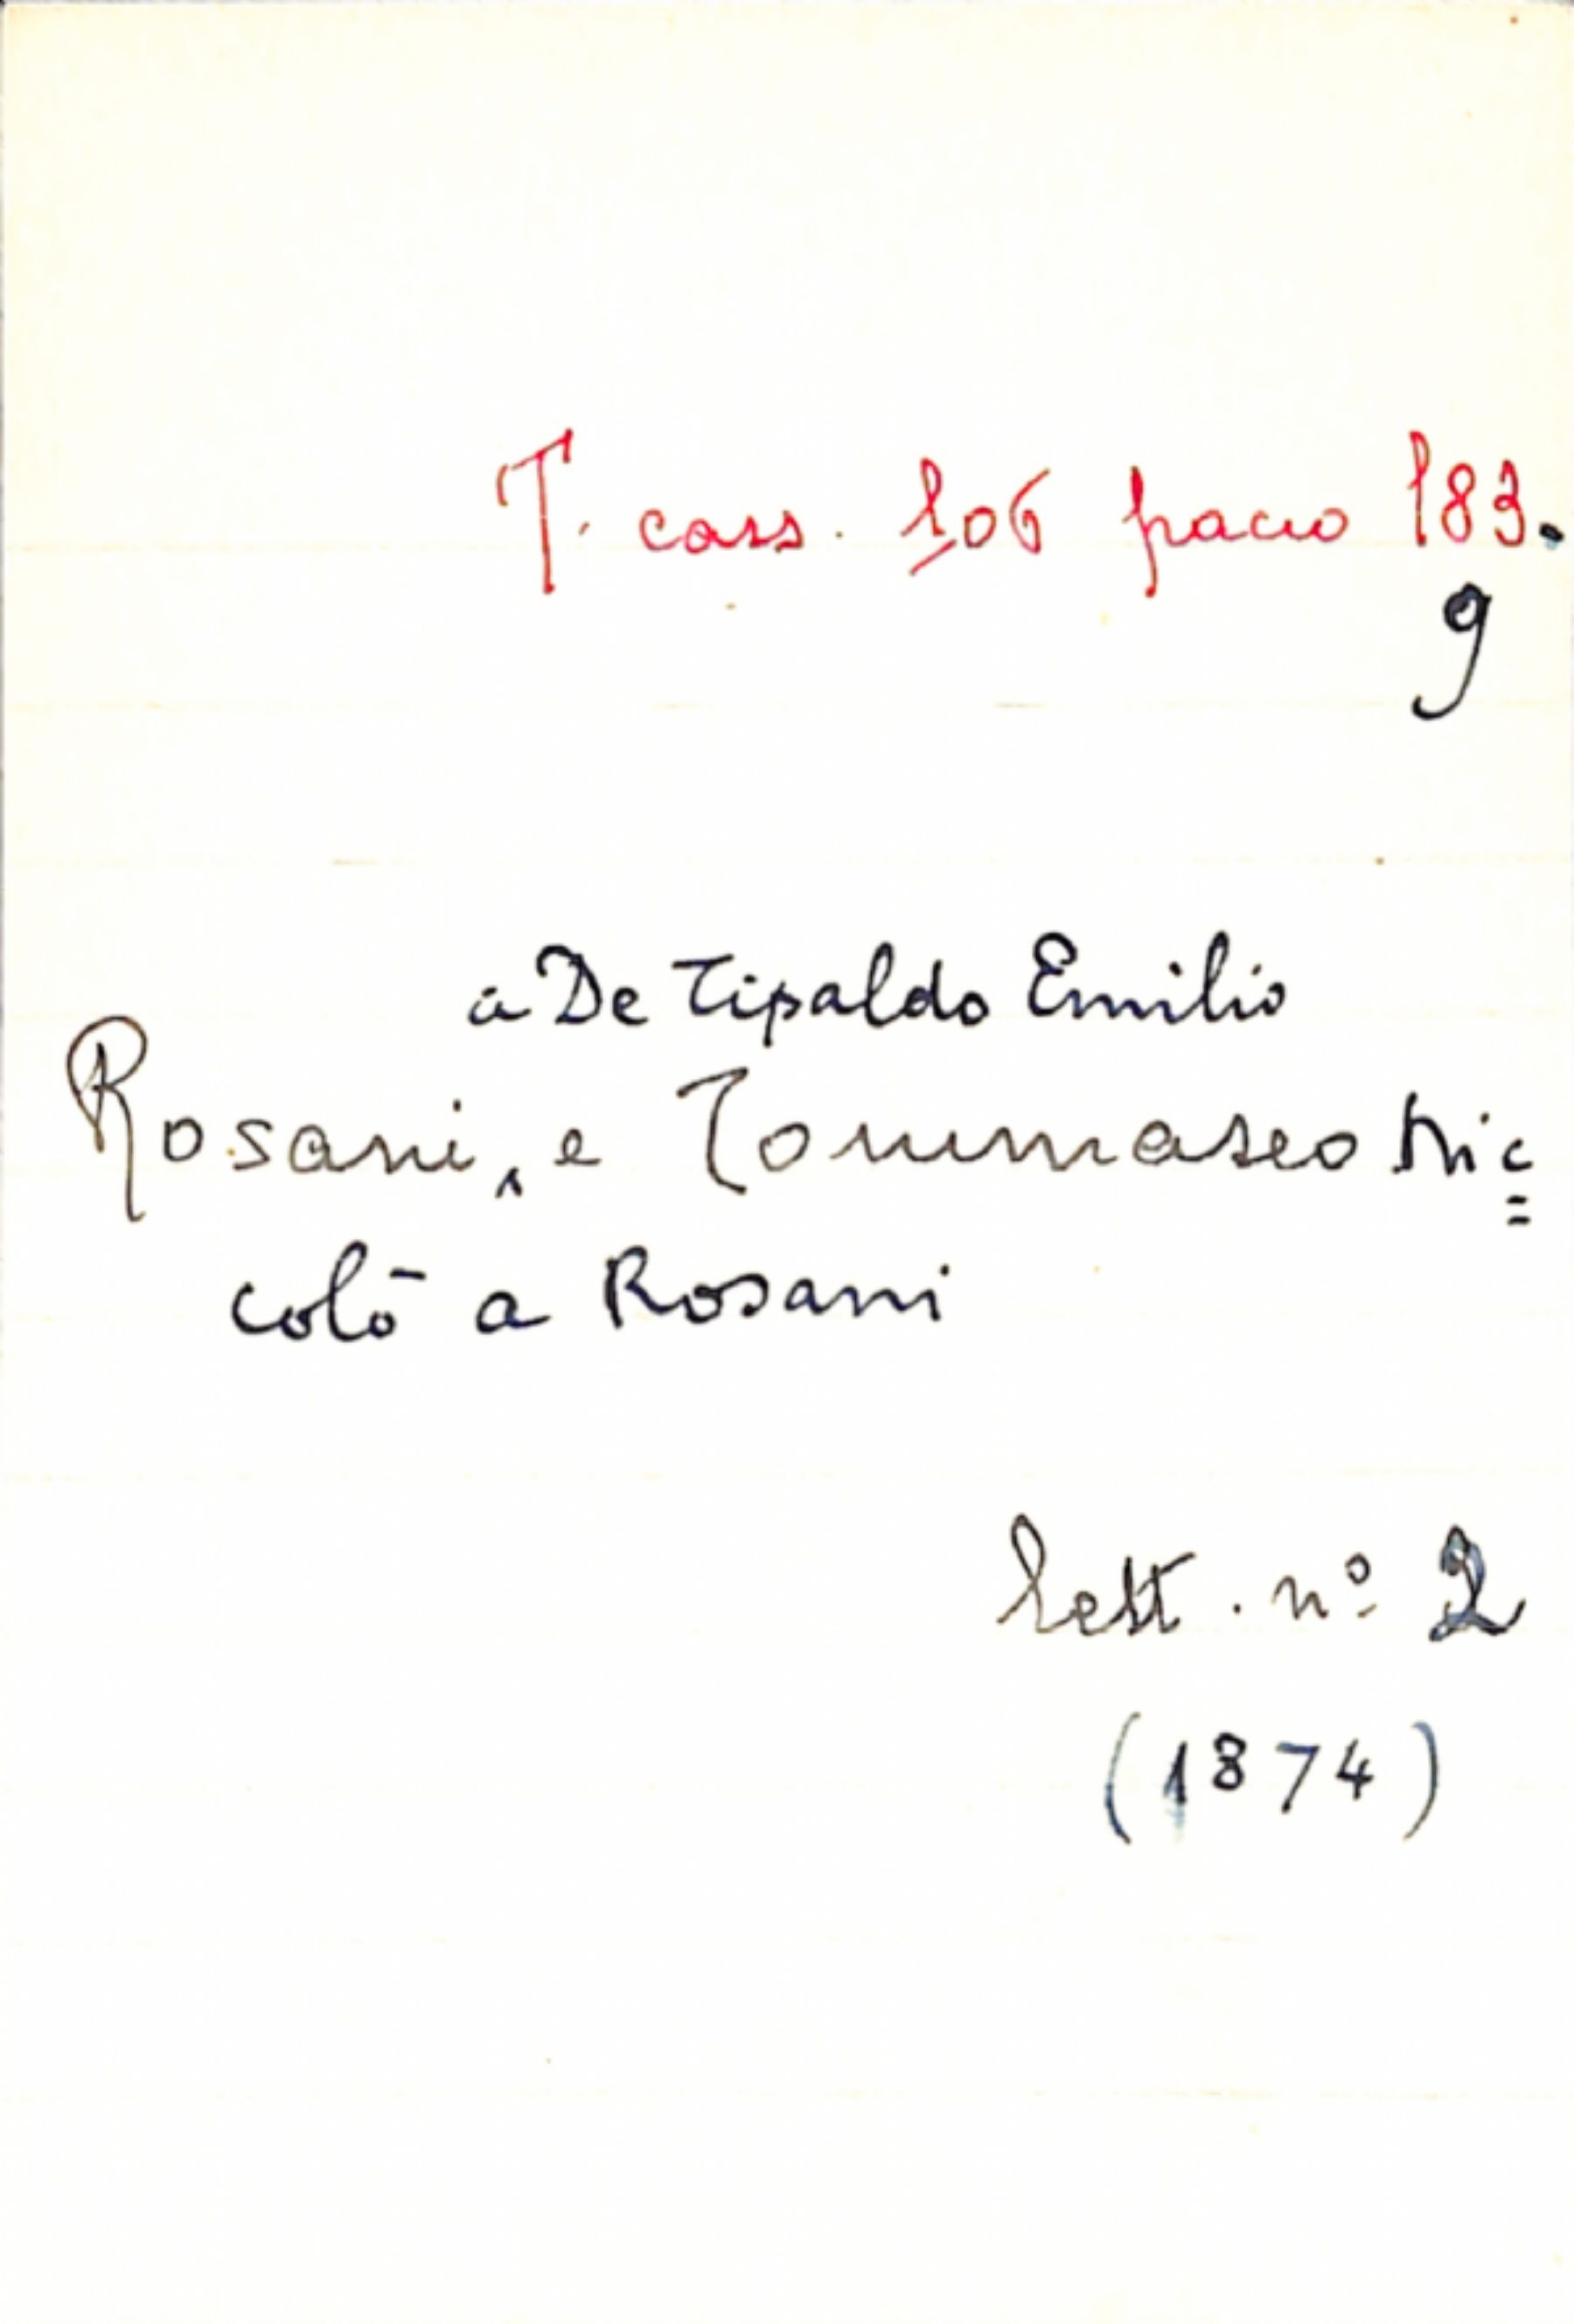 T. cass. 106 pacco 183.
9
a De Tipaldo Emilio
Rosani, e Tommaseo Nic=
colò a Rosani
lett. nº 2
(1874)